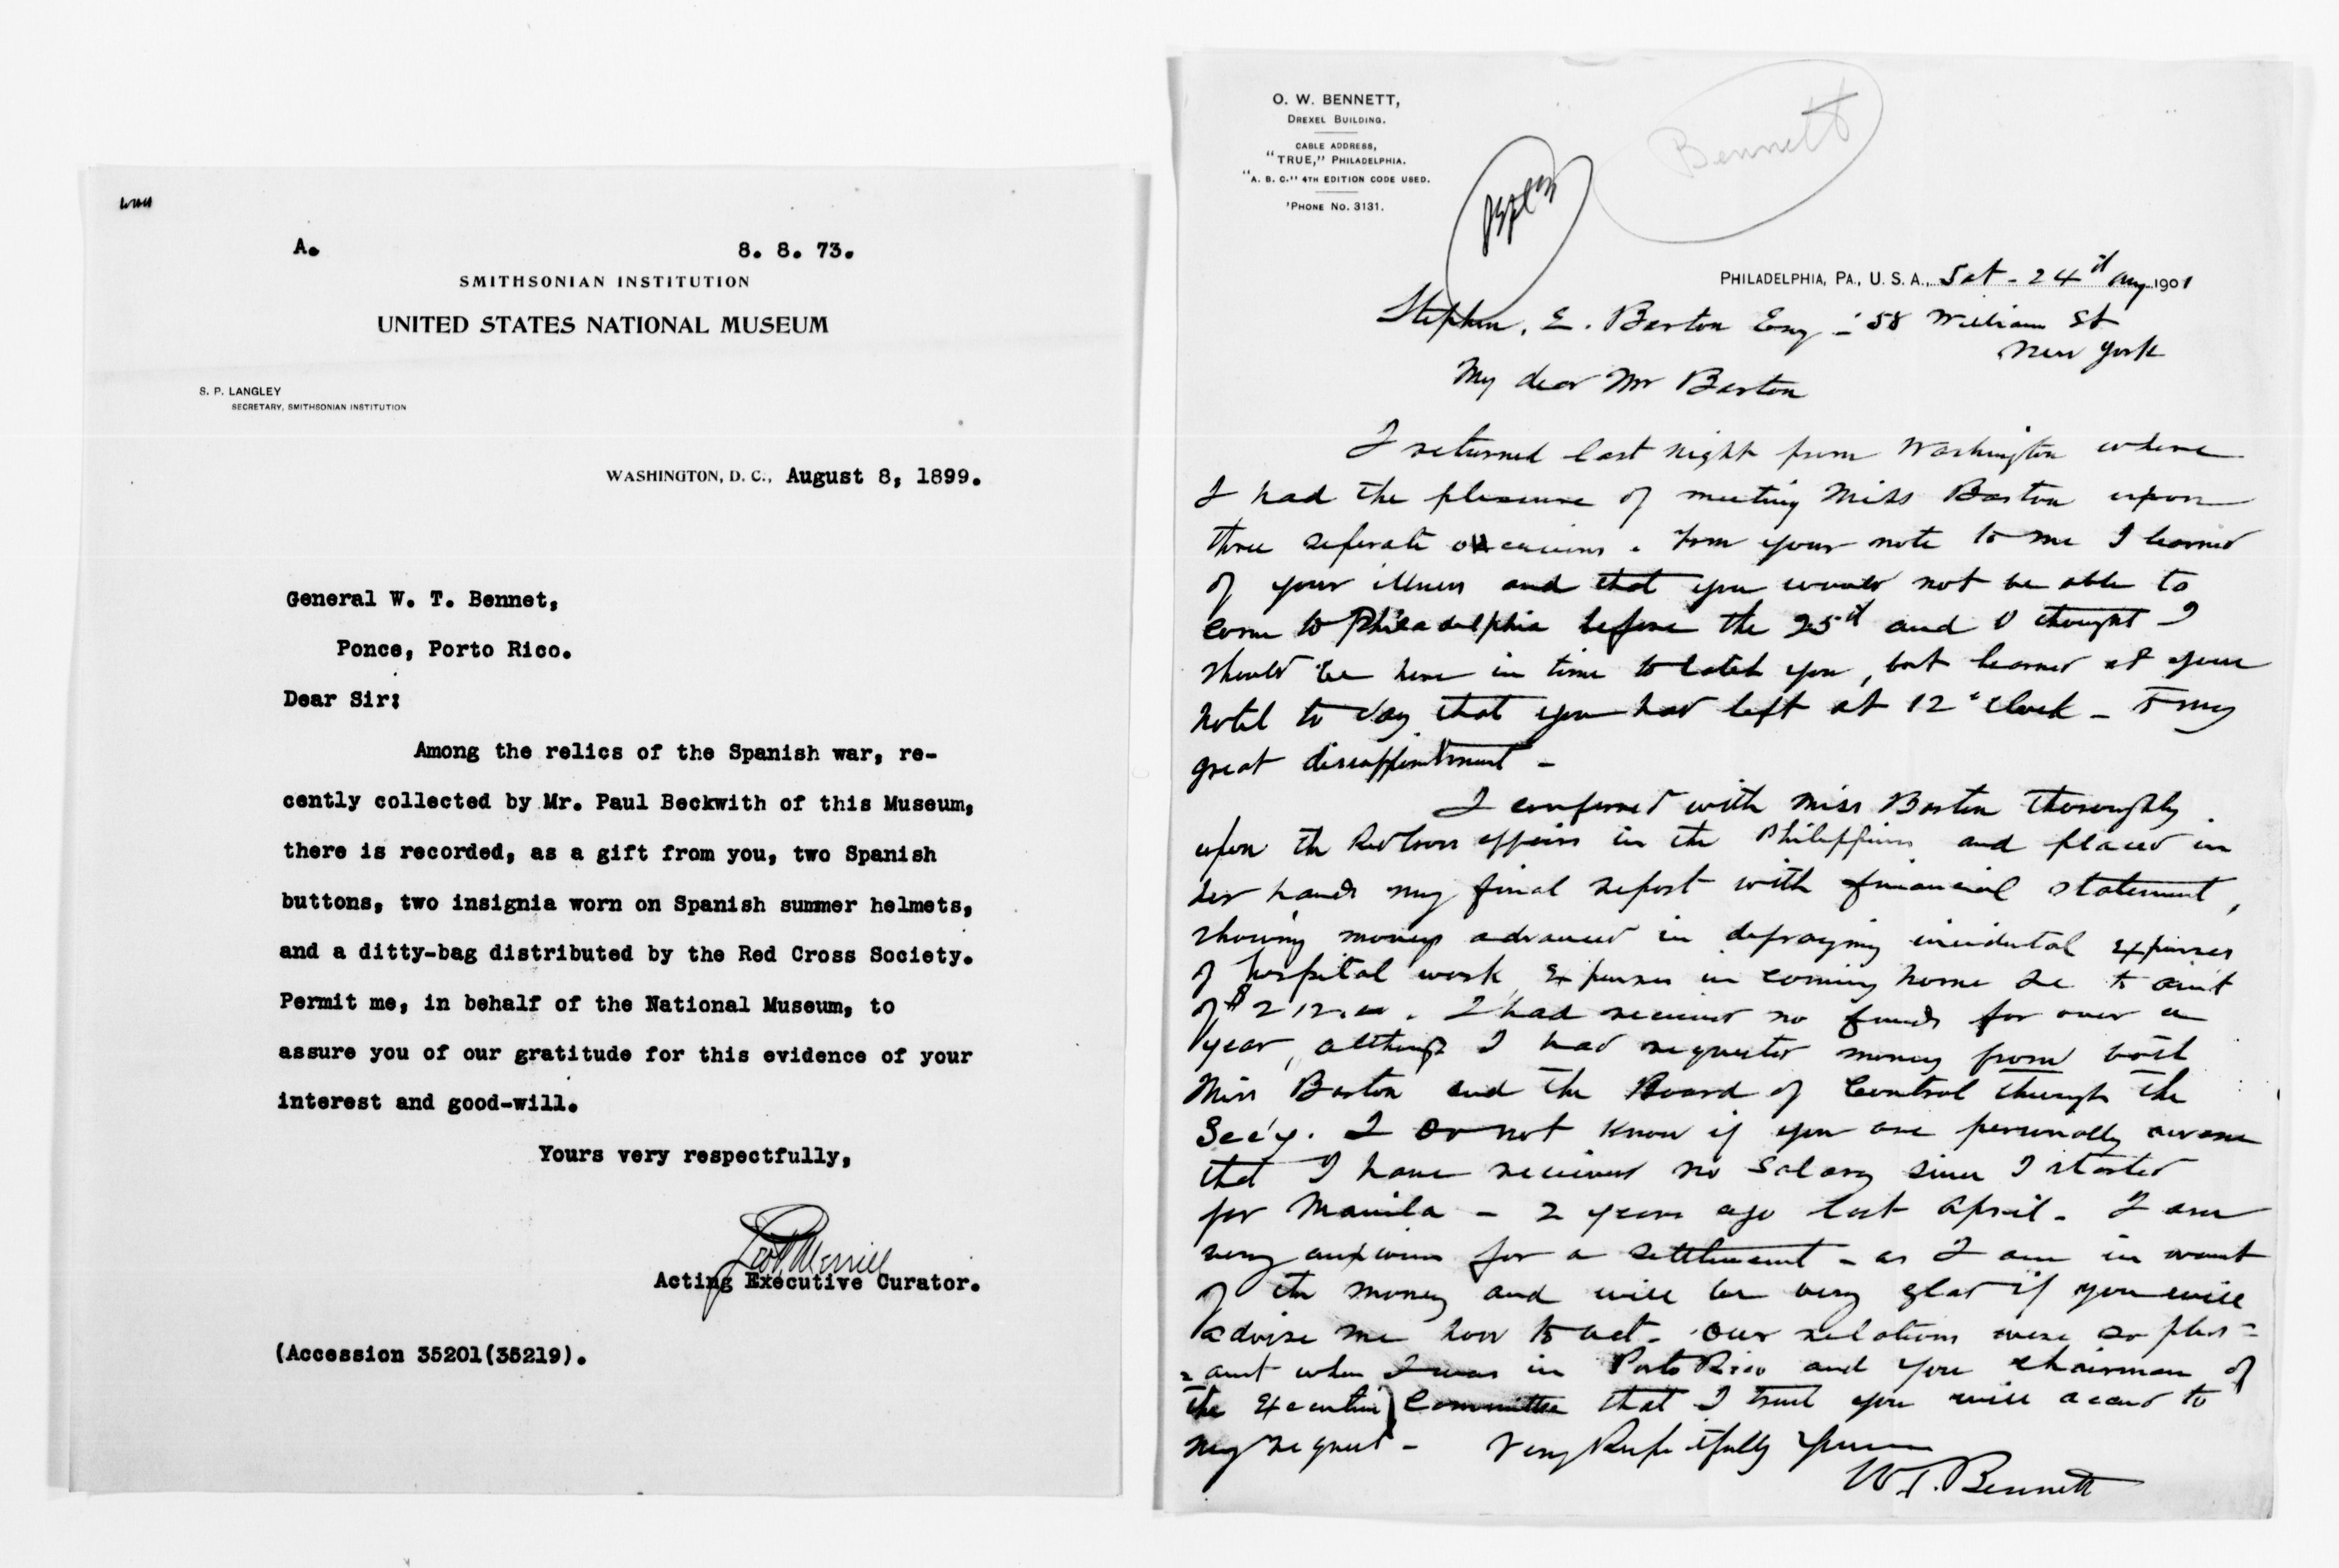 A.
8. 8. 73.
SMITHSONIAN INSTITUTION
UNITED STATES NATIONAL MUSEUM
S. P. LANGLEY
SECRETARY, SMITHSONIAN INSTITUTION
WASHINGTON, D. C., August 8, 1899.
General W. T. Bennet,
Ponce, Porto Rico.
Dear Sir:
Among the relics of the Spanish war, re-
cently collected by Mr. Paul Beckwith of this Museum,
there is recorded, as a gift from you, two Spanish
buttons, two insignia worn on Spanish summer helmets,
and a ditty-bag distributed by the Red Cross Society.
Permit me, in behalf of the National Museum, to
assure you of our gratitude for this evidence of your
interest and good-will.
Yours very respectfully,
Merrill
Acting Executive Curator.
(Accession 35201(35219).
O. W. BENNETT,
DREXEL BUILDING.
CABLE ADDRESS,
"TRUE," PHILADELPHIA.
"A. B. C." 4TH EDITION CODE USED.
'PHONE NO. 3131.
Bennett
PHILADELPHIA, PA., U. S. A., Sat - 24th Aug 1901
Stephen. E. Barton Esq - 58 William St
New York
My dear Mr Barton
I returned last night from Washington where
I had the pleasure of meeting Miss Barton upon
three seperate occasions. From your note to me I learned
of your illness and that you would not be able to
come to Philadelphia before the 25th and I thought I
should be here in time to catch you, but learned at your
hotel to day that you had left at 12 o'clock - to my
great disappointment -
I conferred with Miss Barton thoroughly
upon the Red Cross affairs in the Philippines and placed in
her hands my final report with financial statement,
showing moneys advanced in defraying incidental expenses
of hospital work, expenses in coming home &c to am't
of $212.00. I had received no funds for over a
year, although I had requested money from both
Miss Barton and the Board of Control through the
Sec'y. I do not know if you are personally aware
that I have received no salary since I started
for Manila - 2 years ago last April. I am
very anxious for a settlement - as I am in want
of the money and will be very glad if you will
advise me how to act. Our relations were so pleas=
=ant when I was in Porto Rico and you chairman of
the Executive Committee that I trust you will accede to
my request - Very Respectfully Yours
W. T. Bennett